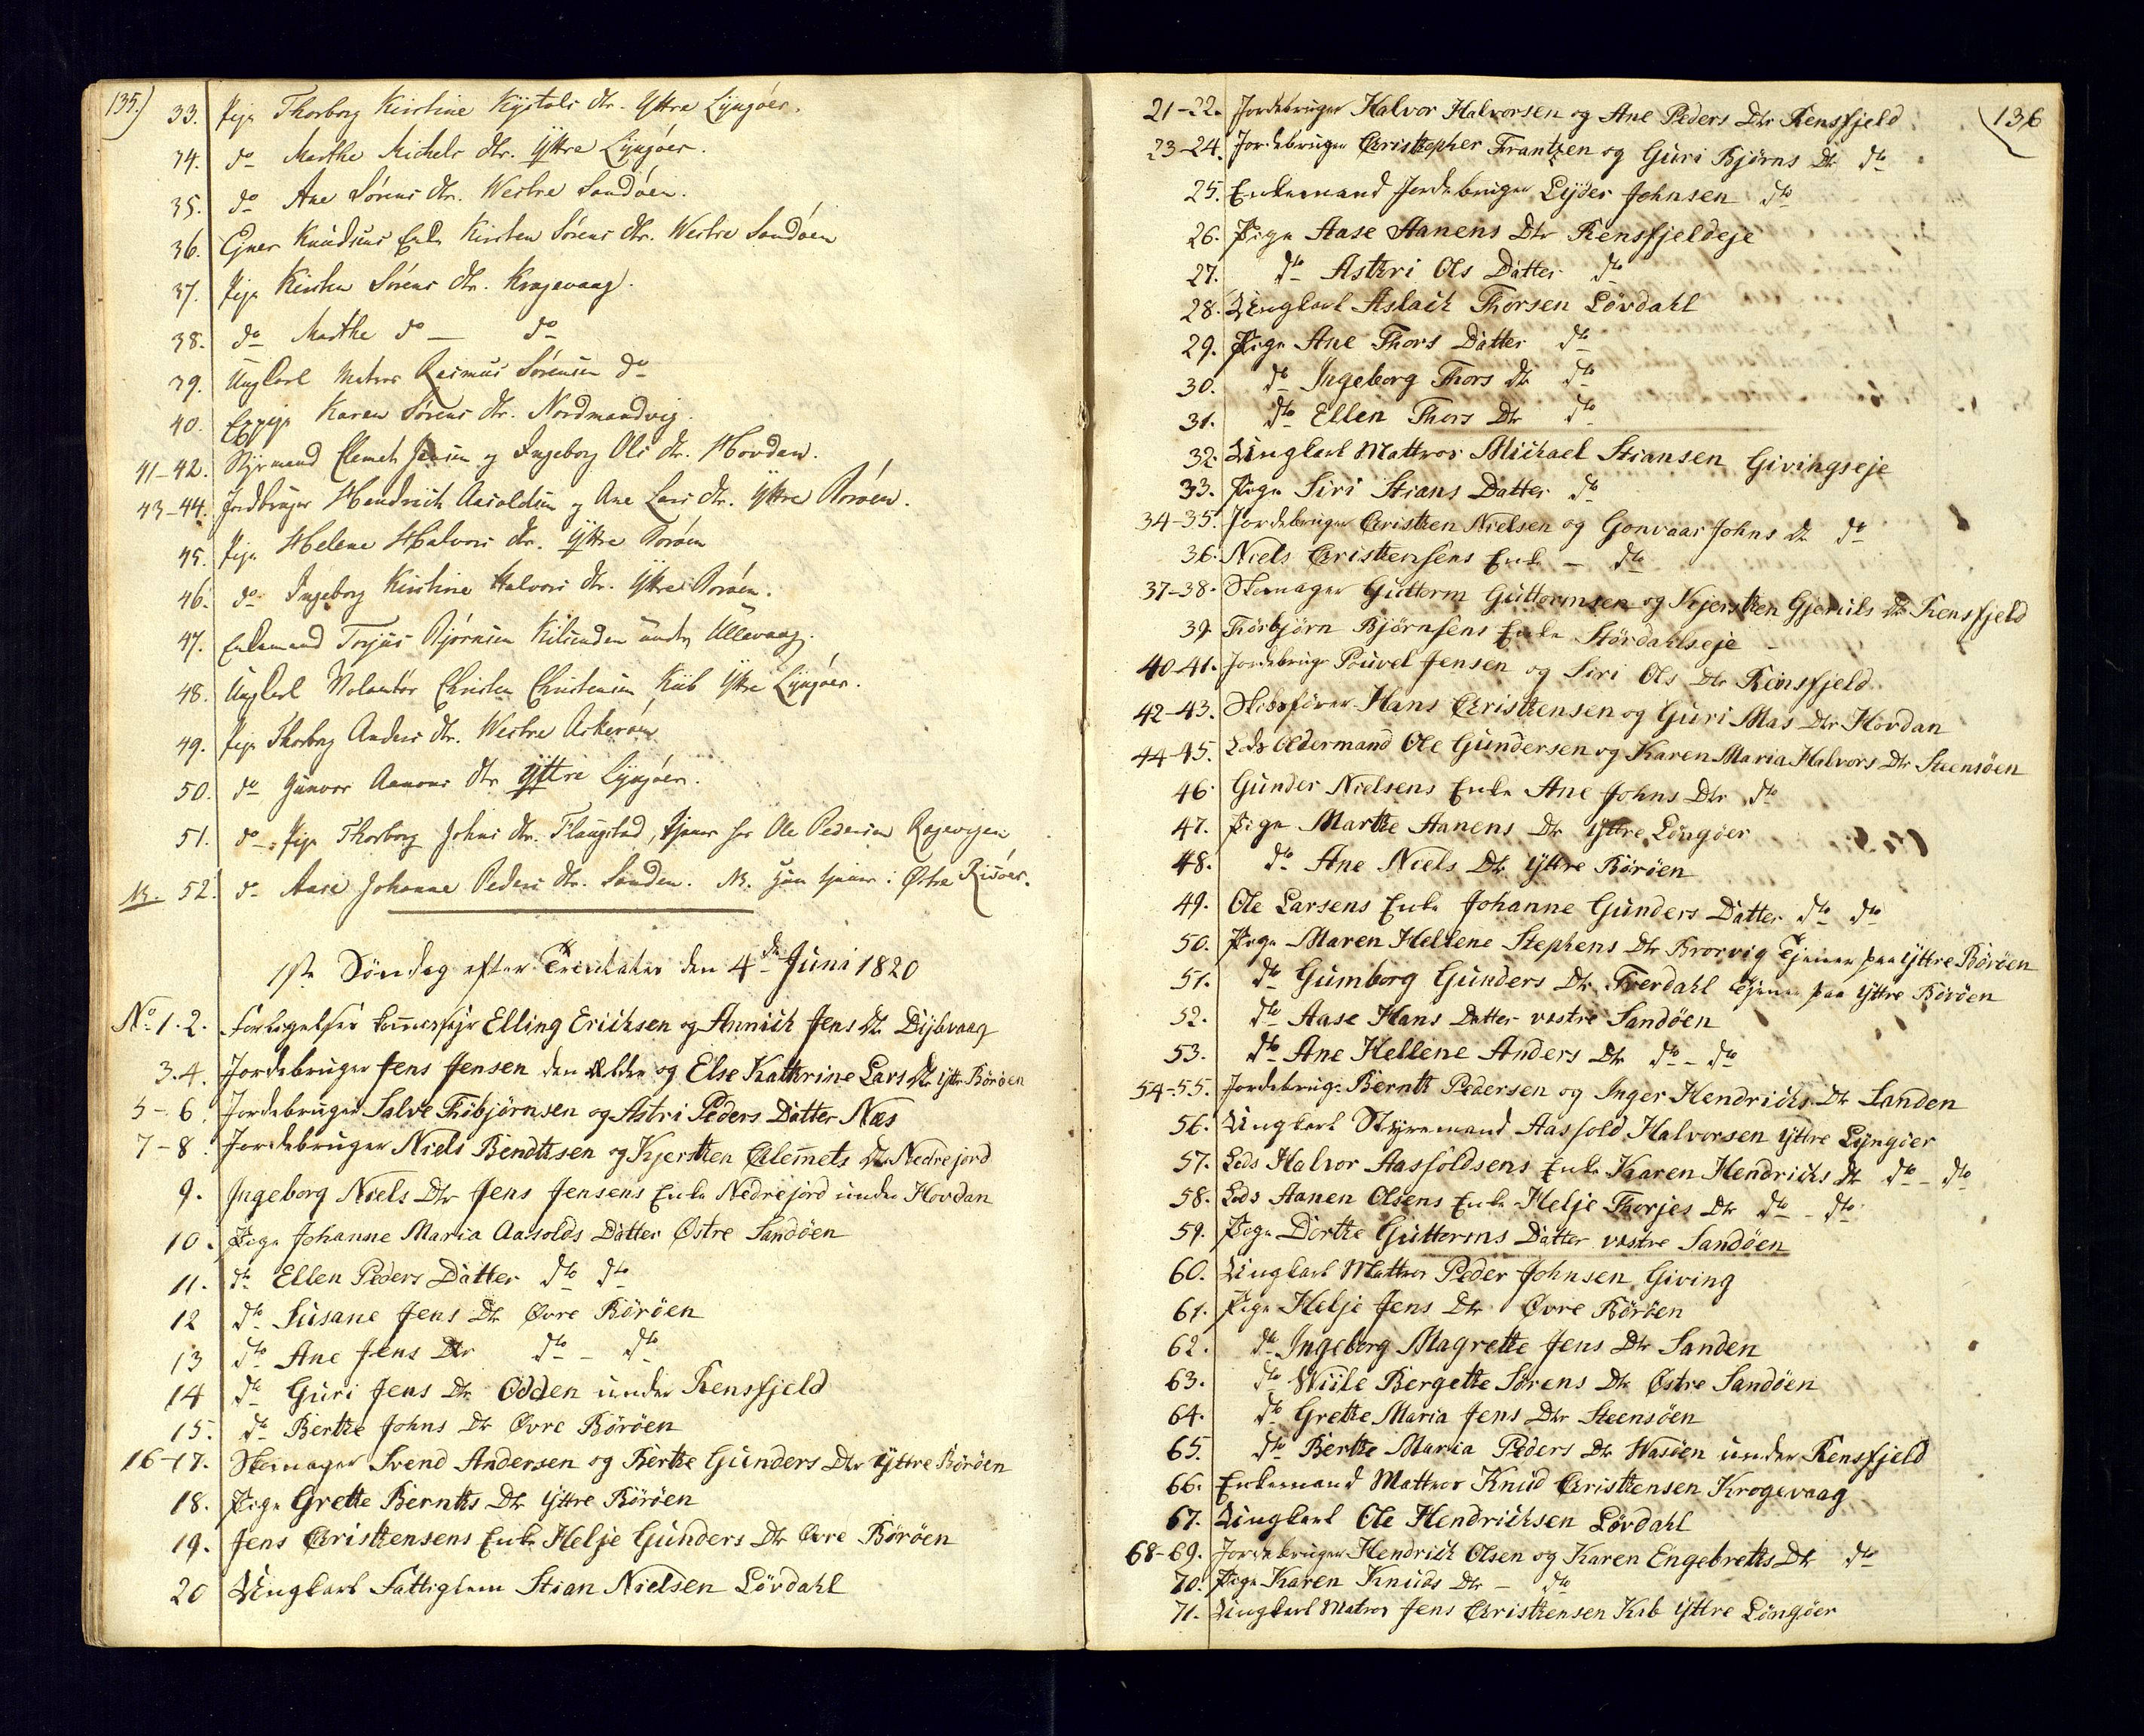 135.)
33. Pige Thorborg Kirstine Kystols Dtr. Yttre Lyngöer.
34. do Marthe Michels dtr. Yttre Lyngöer.
35. do Ane Sörens dtr. Westre Sandöen.
36. Ejner Knudsens Enke Kirsten Sörens dtr. Westre Sandöen
37. Pige Kirsten Sörens dtr. Krogevaag.
38. do Marthe do — do
39. Ungkarl Matros Rasmus Sörensen do
40. Karen Sörens dtr. Nordmandvig.
41-42. Styrmand Clemet Jensen og Ingeborg Ols dtr. Hovdan.
43-44. Jordbruger Hendrich Aasoldsen og Ane Lars dtr. Yttre Böröen.
45. Pige Helene Halvors dtr. Yttre Böröen
46. do Ingeborg Kirstine Halvors dtr. Yttre Böröen.
47. Enkemand Terjus Björnsen Kilsunden under Ullevaag.
48. Ungkarl Christen Christensen Kiib Yttre Lyngöer.
49. Pige Thorborg Anders dtr. Westre Askeröen
50. do Gunvor Aanons dtr Yttre Lyngöer.
51. do Pige Thorborg Johns dtr. Flaugstad, tjener hos Ole Pedersen Ragevigen
NB. 52. do Aase Johanne Peders dtr. Sanden. NB. hun tjener i Østre Risöer.
1ste Söndag efter Trinitatis den 4de Juni 1820
No 1.2. Elling Erichsen og Annich Jens Dtr Dybvaag
3.4. Jordebruger Jens Jensen den ældre og Else Kathrine Lars Dtr Yttre Böröen
5-6. Jordebruger Salve Tribjörnsen og Astri Peders Datter Næs
7-8. Jordebruger Niels Bendtsen og Kjersten Clemets Dtr Nedrejord
9. Ingeborg Niels Dtr Jens Jensens Enke Nedrejord under Hovdan
10. Pige Johanne Maria Aasolds Datter Østre Sandöen
11. dto Ellen Peders Datter dto dto
12 dto Susane Jens Dtr Øvre Böröen
13 dto Ane Jens Dtr dto - dto
14 dto Guri Jens Dtr Odden under Rensfjeld
15. dto Berthe Johns Dtr Øvre Böröen
16-17. Skomager Svend Andersen og Berthe Gunders Dtr Yttre Böröen
18. Pige Grethe Bernths Dtr Yttre Böröen
19. Jens Christhensens Enke Helje Gunders Dtr Øvre Böröen
20 Ungkarl Fattiglem Stian Nielsen Lövdahl
136
21-22. Jordebruger Halvor Halvorsen og Ane Peders Dtr Rensfjeld
23-24. Jordebruger Christhopher Frantzen og Guri Björns Dtr dto
25. Enkemand Jordebruger Lyder Johnsen dto
26. Pige Aase Aanens Dtr Rensfjeldeje
27. dto Asthri Ols Datter dto
28. Ungkarl Aslach Thorsen Lövdahl
29. Pige Ane Thors Datter dto
30. dto Ingeborg Thors Dtr dto
31. dto Ellen Thors Dtr dto
32. Ungkarl Mattros Michael Stiansen Givingseje
33. Pige Siri Stians Datter dto
34-35. Jordebruger Cristhen Nielsen og Gonvaar Johns Dtr dto
36. Niels Cristhensens Enke — dto
37-38. Skomager Guttorm Guttormsen og Kjersthen Gjeruls Dtr Rensfjeld
39. Thorbjörn Björnsens Enke Stördahlseje
40-41. Jordebruger Pouvel Jensen og Siri Ols Dtr Rensfjeld
42-43. Skibsförer Hans Cristhensen og Guri Mas Dtr Hovdan
44-45. Lods Oldermand Ole Gundersen og Karen Maria Halvors Dtr Steensöen
46. Gunder Nielsens Enke Ane Johns Dtr dto
47. Pige Marthe Aanens Dtr Yttre Löngöer
48. dto Ane Niels Dtr Yttre Böröen
49. Ole Larsens Enke Johanne Gunders Datter dto dto
50. Pige Maren Hellene Stephens Dtr Brorvig Tjener paa Yttre Böröen
51. dto Gumborg Gunders Dtr Tverdahl Tjener paa Yttre Böröen
52. dto Aase Hans Datter vestre Sandöen
53. dto Ane Hellene Anders Dtr dto - dto
54-55. Jordebruger Bernth Pedersen og Inger Hendrichs Dtr Sanden
56. Ungkarl Styremand Aassold Halvorsen Yttre Lyngöer
57. Lods Halvor Aassoldsens Enke Karen Hendrichs Dtr dto - dto
58. Lods Aanen Olsens Enke Helje Thorjes Dtr dto - dto
59. Pige Dorthe Guttorms Datter vestre Sandöen
60. Ungkarl Mattros Peder Johnsen Giving
61. Pige Helje Jens Dtr Øvre Böröen
62. dto Ingeborg Magrette Jens Dtr Sanden
63. dto Wiile Bergette Sörens Dtr Østre Sandöen
64. dto Grethe Maria Jens Dtr Steensöen
65. dto Berthe Maria Peders Dtr Wasöen under Rensfjeld
66. Enkemand Mattros Knud Cristhensen Krogevaag
67. Ungkarl Ole Hendrichsen Lövdahl
68-69. Jordebruger Hendrich Olsen og Karen Engebreths Dtr dto
70. Pige Karen Knuds Dtr — dto
71. Ungkarl Matros Jens Cristhensen Kib Yttre Löngöer